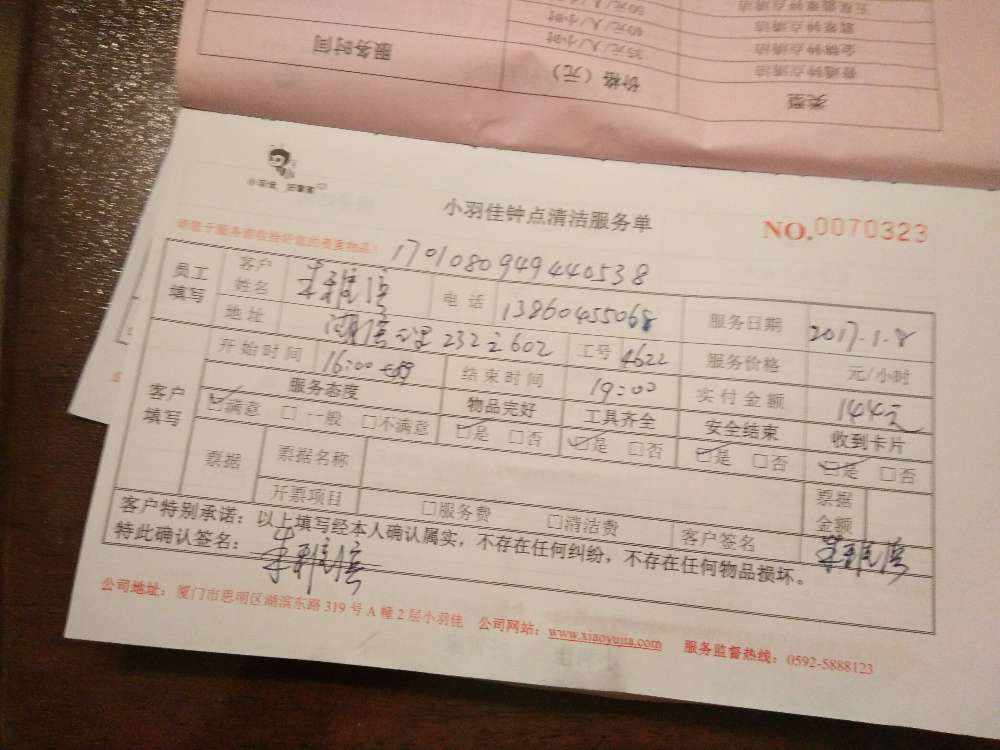 服务时间
价格（元）
类型
35元/人/小时
普通钟点清洁
40元/人/小时
金牌钟点清洁
小羽佳
小羽佳钟点清洁服务单
NO.0070323
请您于服务前收拾好您的贵重物品！
170108094944053８
员工填写
客户姓名
电话
13860455068
服务日期
2017.1.8
地址
232之602
工号
4622
服务价格
元/小时
客户填写
开始时间
16:00
结束时间
19:00
实付金额
144元
服务态度
物品完好
工具齐全
安全结束
收到卡片
☑满意 □一般 □不满意
☑是 □否
☑是 □否
☑是 □否
☑是 □否
票据
票据名称
票据金额
开票项目
□服务费 □清洁费
客户签名
客户特别承诺：以上填写经本人确认属实，不存在任何纠纷，不存在任何物品损坏。
特此确认签名：
公司地址：厦门市思明区湖滨东路319号A幢2层小羽佳 公司网站：www.xiaoyujia.com 服务监督热线：0592-5888123